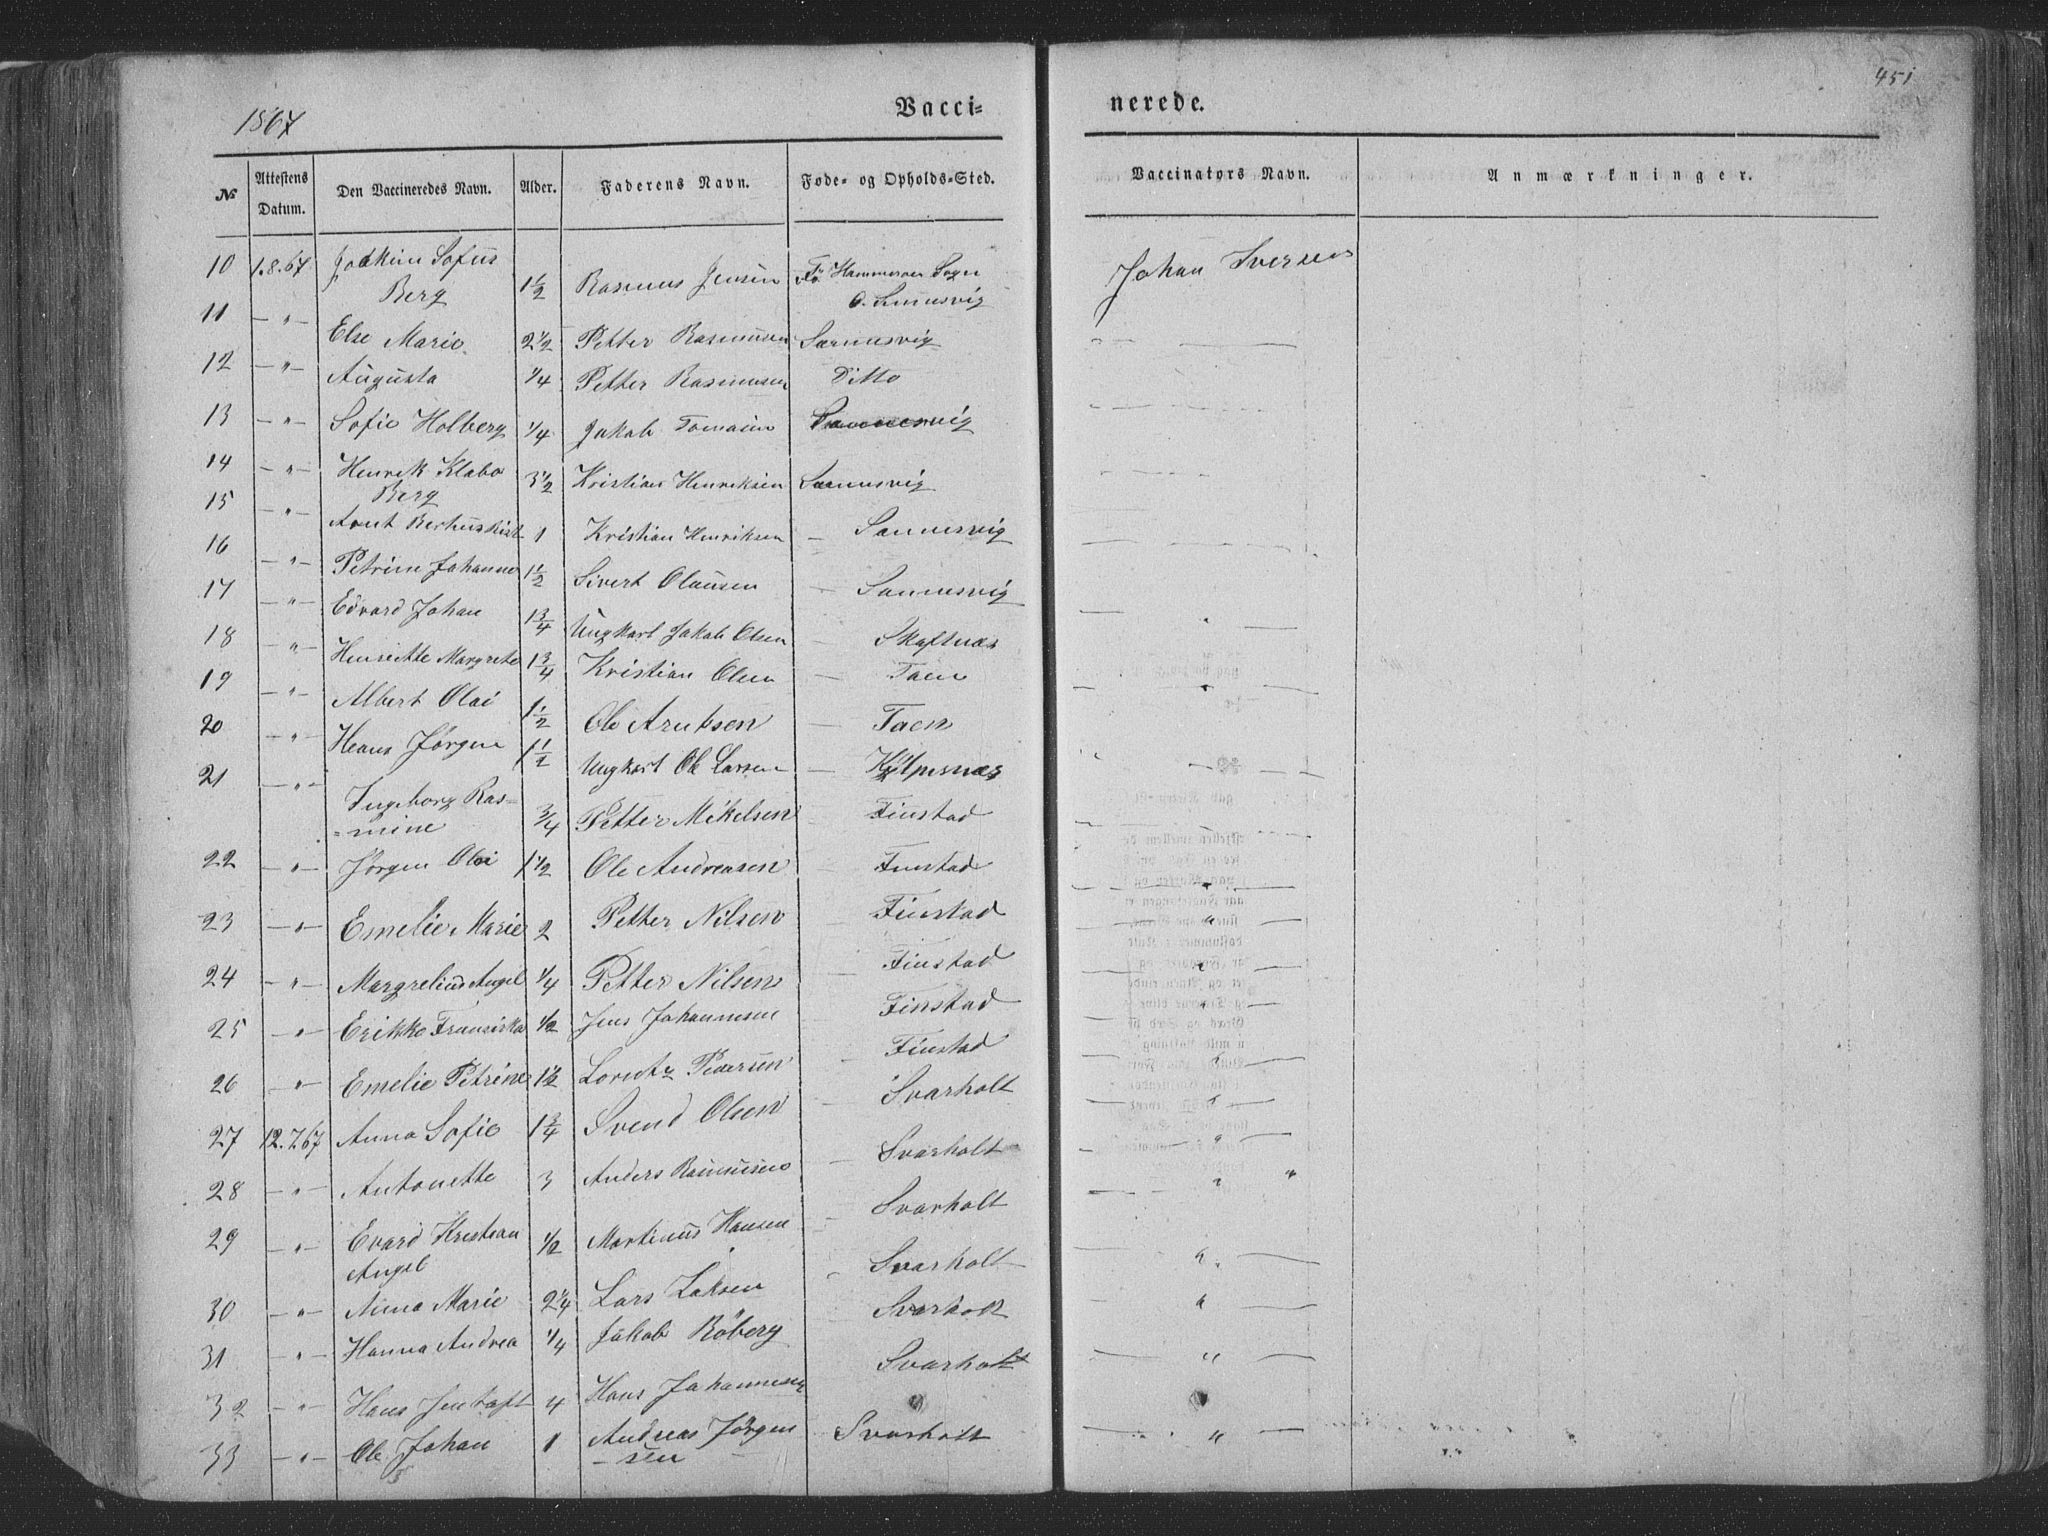 1867
Vacci=
nerede.
451
№ Attestens Datum. Den Vaccineredes Navn. Alder. Faderens Navn. Føde- og Opholds-Sted. Vaccinators Navn. Anmærkninger.
10 1.8.67 Joakim Sofus Berg 1 1/2 Rasmus Jensen Fø. Hammerøen Sogn O. Sannesvig Johan Iversen
11 — " — Else Marie 2 1/2 Petter Rasmusen Sannesvig — " —
12 — " — Augusta 1/4 Petter Rasmusen Ditto
13 — " — Sofie Holberg 1/4 Jakob Tomasen Sannesvig
14 — " — Henrik Klabo Berg 3 1/2 Kristian Henriksen Sannesvig
15 — " — Arnt Berhus Krist 1 Kristian Henriksen — Sannesvig
16 — " — Petrine Johanne 1 1/2 Sivert Olausen — Sannesvig
17 — " — Edvard Johan 1 3/4 Ungkarl Jakob Olsen — Skaftnæs — " —
18 — " — Henseitte Margrete 1 3/4 Kristian Olsen — Taen — " —
19 — " — Albert Olai 1 1/2 Ole Arntsen — Taen — " —
20 — " — Heans Jørgen 1 1/2 Ungkarl Ole Larsen — Hjelpesnæs
21 — " — Ingeborg Ras=
=mine 3/4 Petter Mikelsen Finstad
22 — " — Jørgen Olai 1 1/2 Ole Andreasen — Finstad — " —
23 — " — Emelie Marie 2 Petter Nilsen — Finstad — " —
24 — " — Margrelius Angel 1/4 Petter Nilsen — Finstad — " —
25 — " — Erikke Fransiska 1/2 Jens Johannesen — Finstad
26 — " — Emelie Petrine 1 1/2 Lorentz Pedersen — Finstad — " —
27 12.7.67 Anna Sofie 1 3/4 Svend Olsen — Svarholt — " —
28 — " — Antonette 3 Anders Rasmusen — Svarholt — " —
29 — " — Evard Kristian Angel 1/2 Martinus Hansen — Svarholt — " —
30 — " — Anna Marie 2 1/4 Lars Isaksen — Svarholt — " —
31 — " — Hanna Andrea 1/4 Jakob Røberg Svarholt — " —
32 — " — Hans Jentoft 4 Hans Johannesen Svarholt
33 — " — Ole Johan 1 Andreas Jørgen
— sen — Svarholt — " —